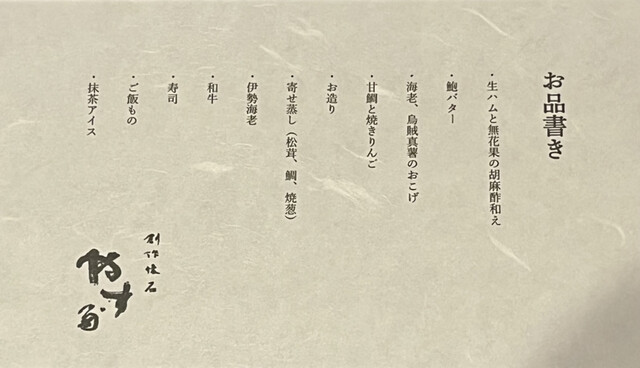 お品書き
・生ハムと無花果の胡麻酢和え
・鮑バター
・海老、烏賊真薯のおこげ
・甘鯛と焼きりんご
・お造り
・寄せ蒸し（松茸、鯛、焼葱）
・伊勢海老
・和牛
・寿司
・ご飯もの
・抹茶アイス
創作懐石